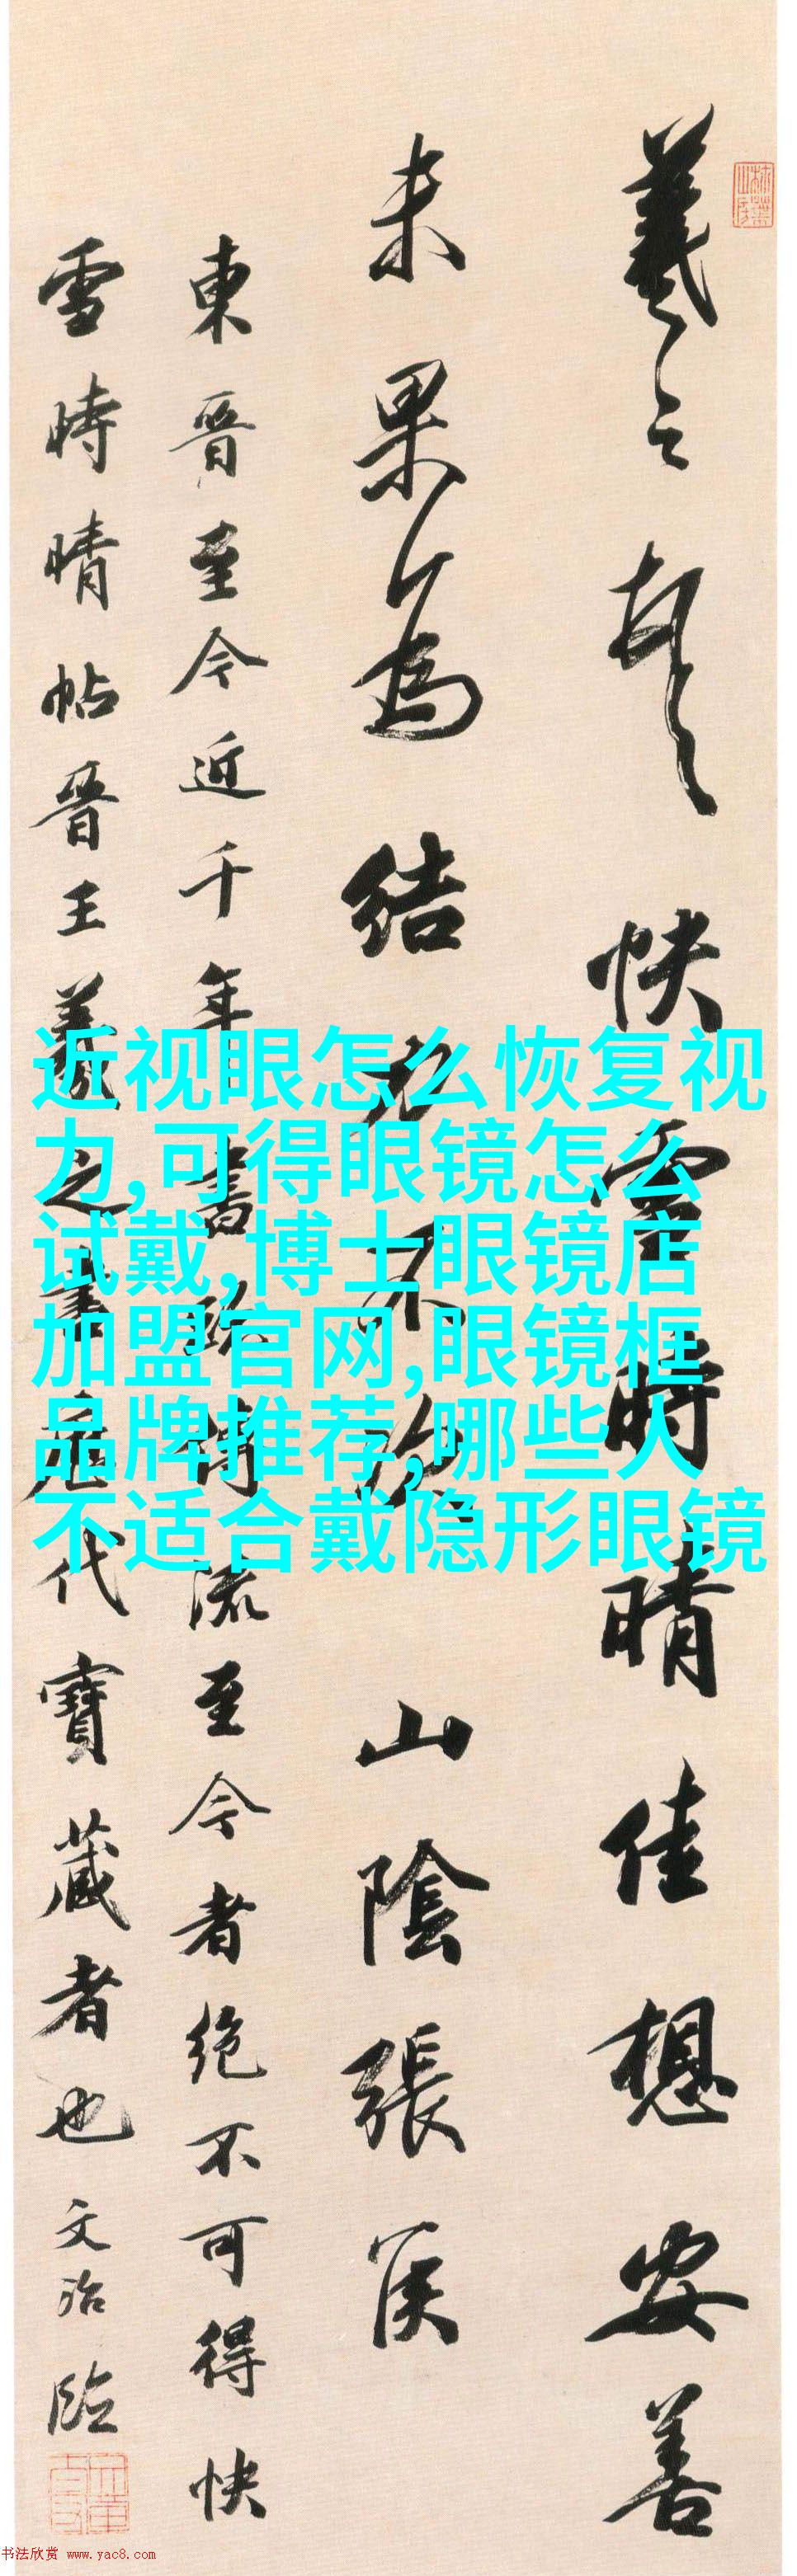 羲之頓首快雪時晴佳想安善
未果為結力不次 山陰張侯
東晉至今近千年書跡傳流至今者絶不可得快
雪時晴帖晉王羲之書歷代寶藏者也文治臨
近视眼怎么恢复视
力,可得眼镜怎么
试戴,博士眼镜店
加盟官网,眼镜框
品牌推荐,哪些人
不适合戴隐形眼镜
书法欣赏 www.yac8.com